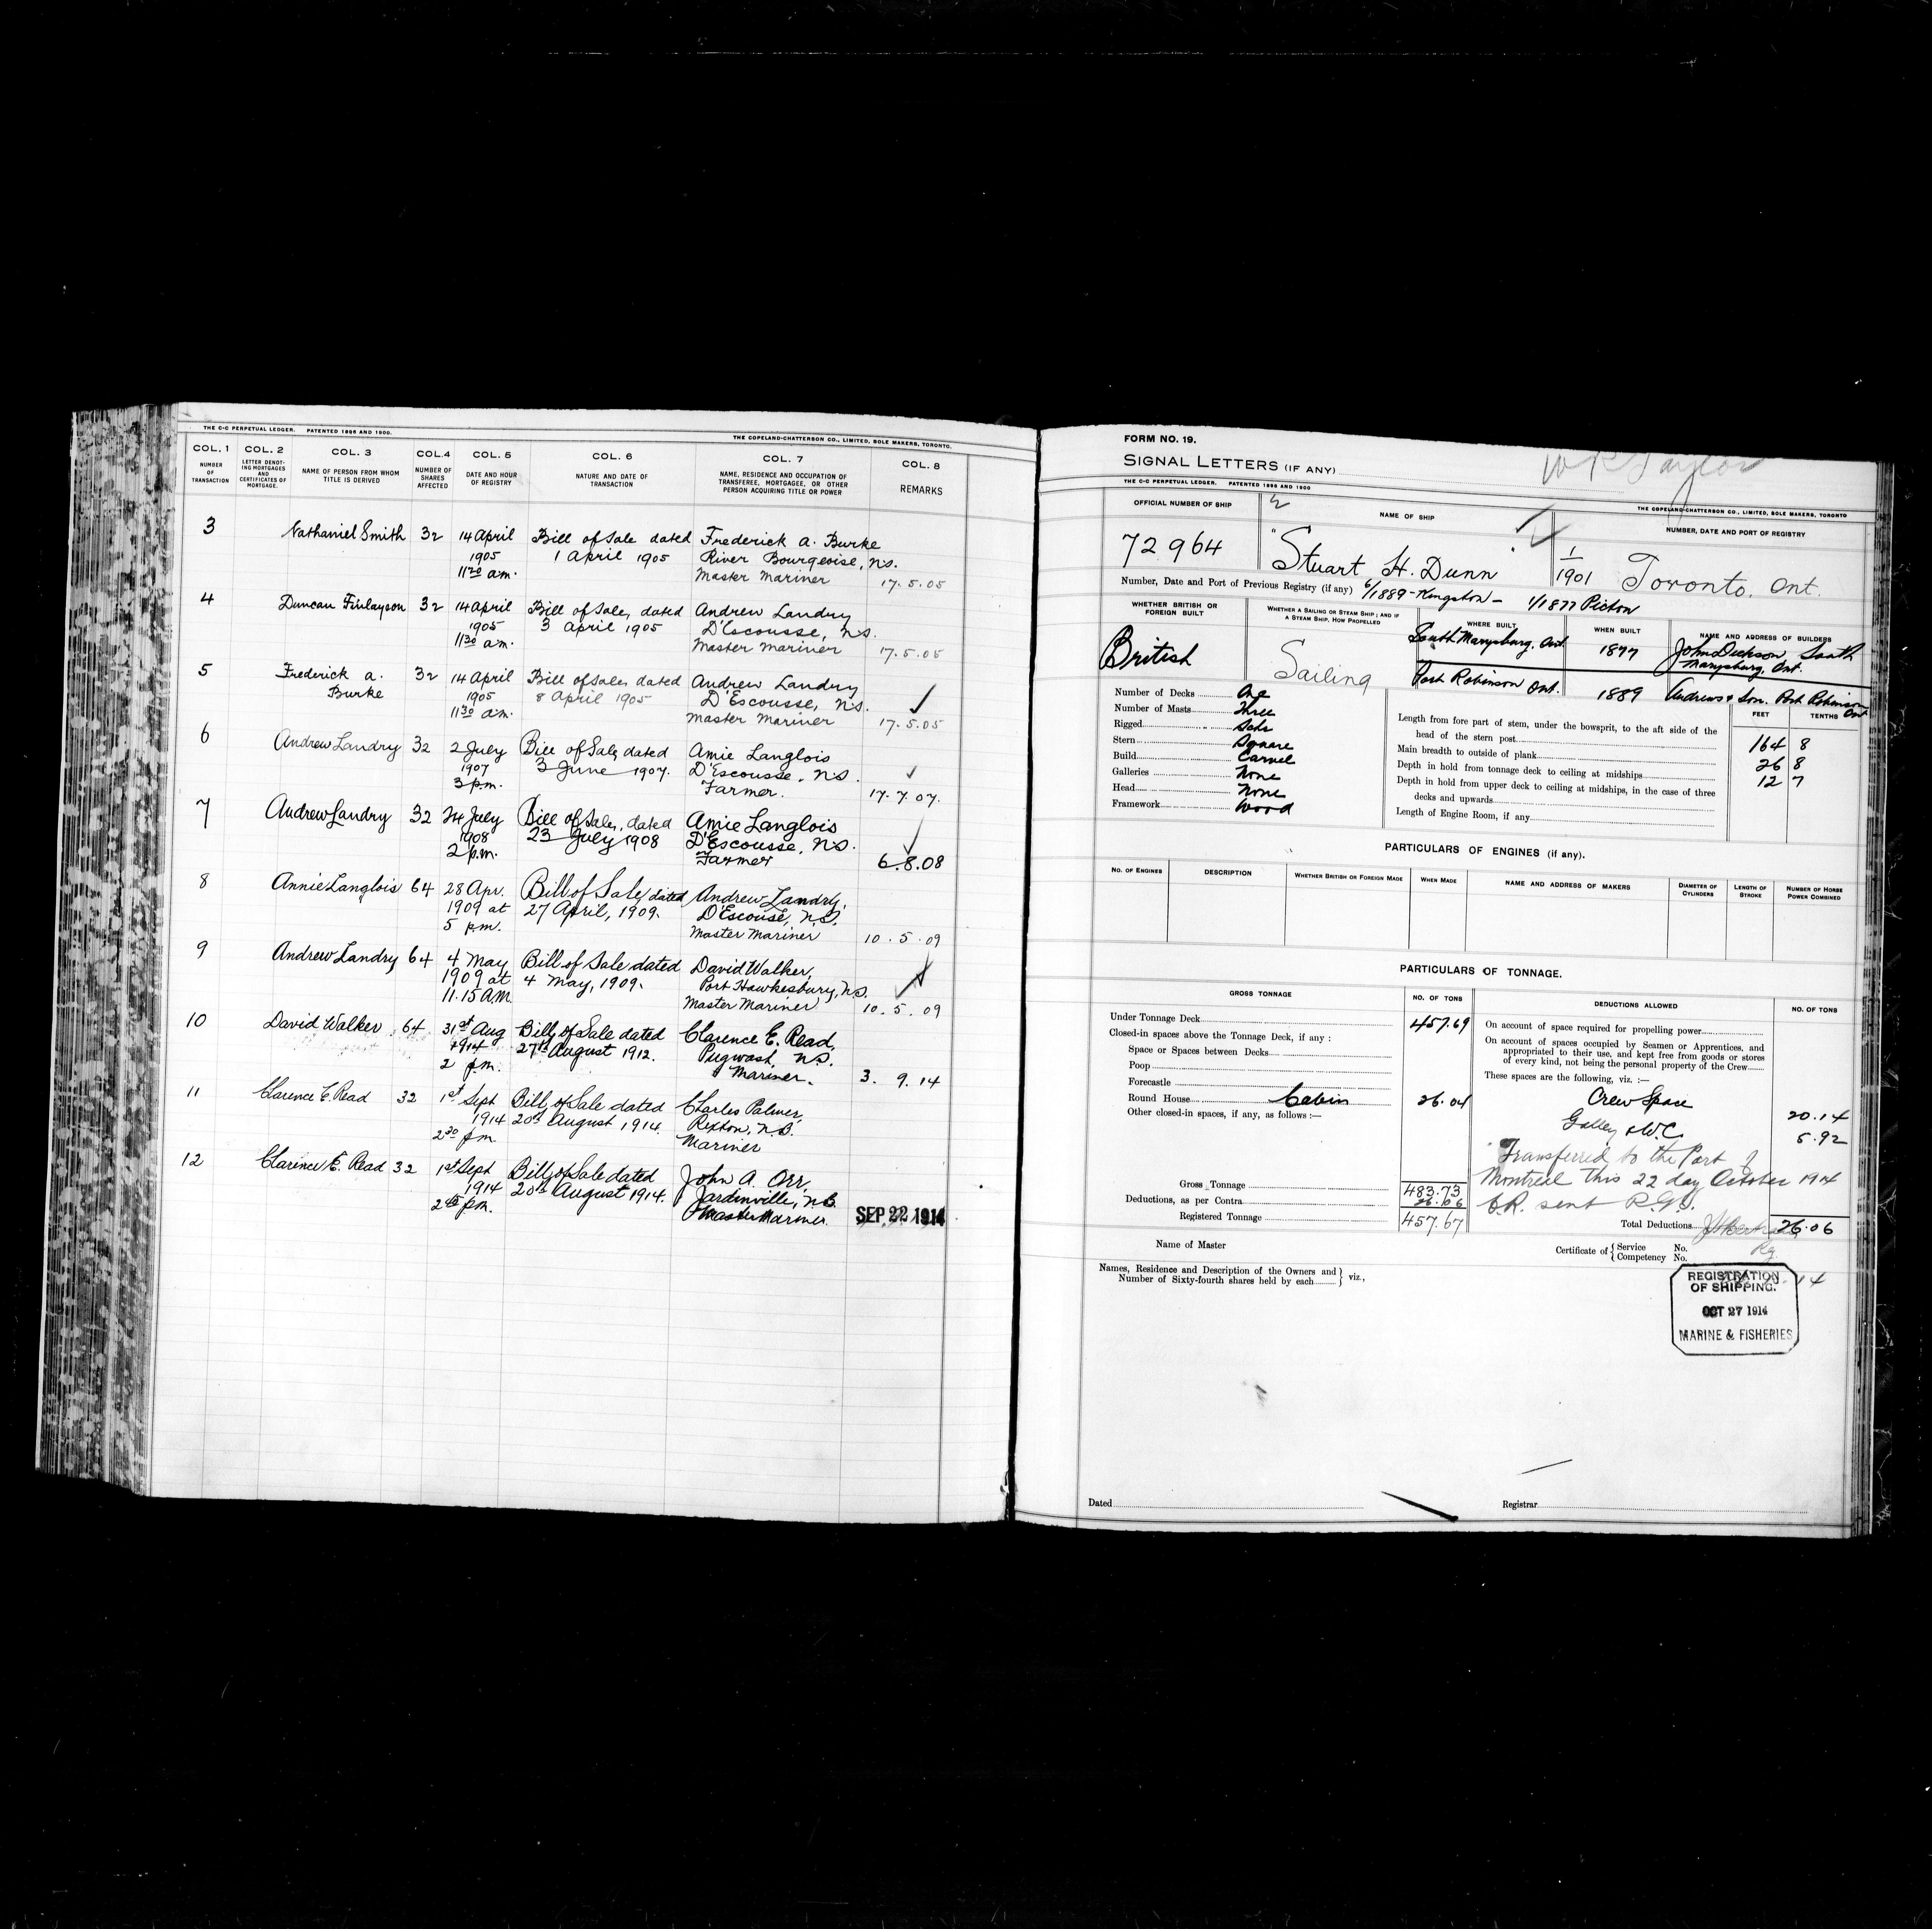 THE C-C PERPETUAL LEDGER. PATENTED 1896 AND 1900.
THE COPELAND-CHATTERSON CO., LIMITED, SOLE MAKERS, TORONTO.
COL. 1 COL. 2 COL. 3 COL. 4 COL. 5 COL. 6 COL. 7 COL. 8
NUMBER OF TRANSACTION
LETTER DENOTING MORTGAGES AND CERTIFICATES OF MORTGAGE.
NAME OF PERSON FROM WHOM TITLE IS DERIVED
NUMBER OF SHARES AFFECTED
DATE AND HOUR OF REGISTRY
NATURE AND DATE OF TRANSACTION
NAME, RESIDENCE AND OCCUPATION OF TRANSFEREE, MORTGAGEE, OR OTHER PERSON ACQUIRING TITLE OR POWER
REMARKS
3 Nathaniel Smith 32 14 April Bill of Sale dated Frederick A. Burke
1905 1 April 1905 River Bourgeoise, N.S.
11 20 a.m. Master Mariner 17.5.05
4 Duncan Finlayson 32 14 April Bill of Sale, dated Andrew Landry
1905 3 April 1905 D'Escousse, N.S.
11 30 a.m. Master Mariner 17.5.05
5 Frederick A. 32 14 April Bill of Sale, dated Andrew Landry
Burke 1905 8 April 1905 D'Escousse, N.S.
11 30 a.m. Master Mariner 17.5.05
6 Andrew Landry 32 2 July Bill of Sale, dated Amie Langlois
1907 3 June 1907. D'Escousse, N.S.
3 p.m. Farmer. 17.7.07.
7 Andrew Landry 32 24 July Bill of Sale, dated Amie Langlois
1908 23 July 1908 D'Escousse, N.S.
2 p.m. Farmer 6.8.08
8 Annie Langlois 64 28 Apr. Bill of Sale dated Andrew Landry,
1909 at 27 April, 1909. D'Escouse, N.S.
5 p.m. Master Mariner 10.5.09
9 Andrew Landry 64 4 May Bill of Sale dated David Walker,
1909 at 4 May, 1909. Port Hawkesbury, N.S.
11.15 A.M. Master Mariner 10.5.09
10 David Walker 64 31st Aug Bill of Sale dated Clarence E. Read,
1914 27th August 1912. Pugwash, N.S.
2 p.m. Mariner. 3.9.14
11 Clarence E. Read 32 1st Sept Bill of Sale dated Charles Palmer,
1914 20th August 1914. Rexton, N.B.
2 30 p.m. Mariner
12 Clarence E. Read 32 1st Sept Bill of Sale dated John A. Orr,
1914 20th August 1914. Jardinville, N.B.
2 45 p.m. Master Mariner. SEP 22 1914
FORM NO. 19.
SIGNAL LETTERS (IF ANY)
W R Taylor
THE C-C PERPETUAL LEDGER. PATENTED 1896 AND 1900
THE COPELAND-CHATTERSON CO., LIMITED, SOLE MAKERS, TORONTO
OFFICIAL NUMBER OF SHIP NAME OF SHIP NUMBER, DATE AND PORT OF REGISTRY
72964 "Stuart H. Dunn" 1/1901 Toronto, Ont.
Number, Date and Port of Previous Registry (if any) 6/1889 - Kingston - 1/1877 Picton
WHETHER BRITISH OR FOREIGN BUILT
WHETHER A SAILING OR STEAM SHIP; AND IF A STEAM SHIP, HOW PROPELLED
WHERE BUILT WHEN BUILT NAME AND ADDRESS OF BUILDERS
British Sailing South Marysburg, Ont. 1877 John Dickson, South Marysburg, Ont.
Port Robinson Ont. 1889 Andrews & Son, Port Robinson Ont
Number of Decks One
Number of Masts Three
Rigged Schr
Stern Square
Build Carvel
Galleries None
Head None
Framework Wood
FEET TENTHS
Length from fore part of stem, under the bowsprit, to the aft side of the head of the stern post 164 8
Main breadth to outside of plank 26 8
Depth in hold from tonnage deck to ceiling at midships 12 7
Depth in hold from upper deck to ceiling at midships, in the case of three decks and upwards
Length of Engine Room, if any
PARTICULARS OF ENGINES (if any).
NO. OF ENGINES DESCRIPTION WHETHER BRITISH OR FOREIGN MADE WHEN MADE NAME AND ADDRESS OF MAKERS DIAMETER OF CYLINDERS LENGTH OF STROKE NUMBER OF HORSE POWER COMBINED
PARTICULARS OF TONNAGE.
GROSS TONNAGE NO. OF TONS DEDUCTIONS ALLOWED NO. OF TONS
Under Tonnage Deck 457.69
Closed-in spaces above the Tonnage Deck, if any :
Space or Spaces between Decks
Poop
Forecastle
Round House Cabin 26.04
Other closed-in spaces, if any, as follows :—
Gross Tonnage 483.73
Deductions, as per Contra 26.06
Registered Tonnage 457.67
On account of space required for propelling power
On account of spaces occupied by Seamen or Apprentices, and appropriated to their use, and kept free from goods or stores of every kind, not being the personal property of the Crew
These spaces are the following, viz. :—
Crew Space 20.14
Galley & W.C. 5.92
Transferred to the Port of
Montreal this 22 day October 1914
C.R. sent R.G.S.
Total Deductions 26.06
Rg.
Name of Master
Certificate of { Service No.
Competency No.
Names, Residence and Description of the Owners and } viz.,
Number of Sixty-fourth shares held by each
REGISTRATION
OF SHIPPING.
OCT 27 1914
MARINE & FISHERIES
Dated
Registrar